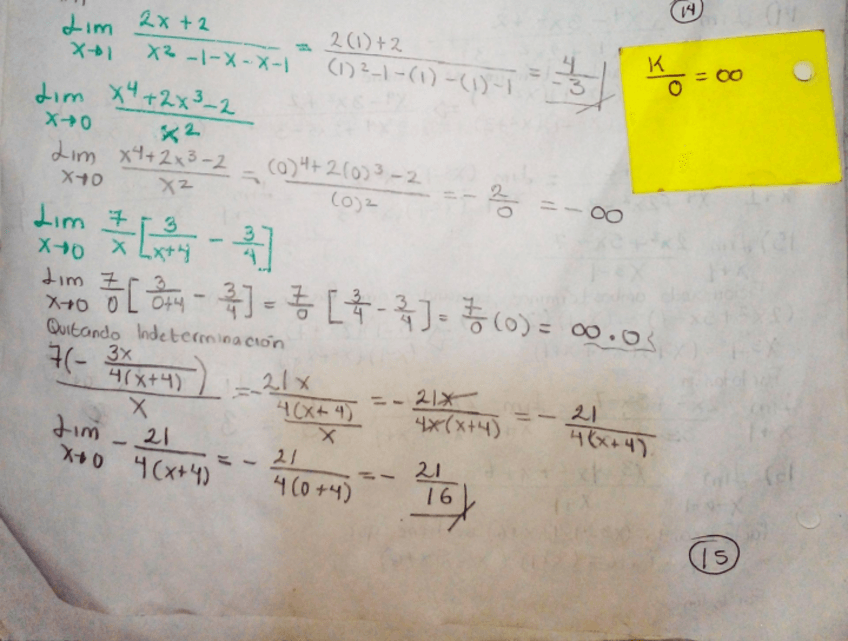 14
Lim x→1 (2x + 2)/(x² - 1 - x - x - 1) = (2(1) + 2)/((1)² - 1 - (1) - (1) - 1) = 4/-3
K/0 = ∞
Lim x→0 (x⁴ + 2x³ - 2)/x²
Lim x→0 (x⁴ + 2x³ - 2)/x² = ((0)⁴ + 2(0)³ - 2)/(0)² = - 2/0 = - ∞
Lim x→0 7/x [3/(x+4) - 3/4]
Lim x→0 7/0 [3/(0+4) - 3/4] = 7/0 [3/4 - 3/4] = 7/0 (0) = ∞ . 0
Quitando Indeterminación
7(- 3x/(4(x+4)))/x = - (21x/(4(x+4)))/x = - 21x/(4x(x+4)) = - 21/(4(x+4))
Lim x→0 - 21/(4(x+4)) = - 21/(4(0+4)) = - 21/16
15